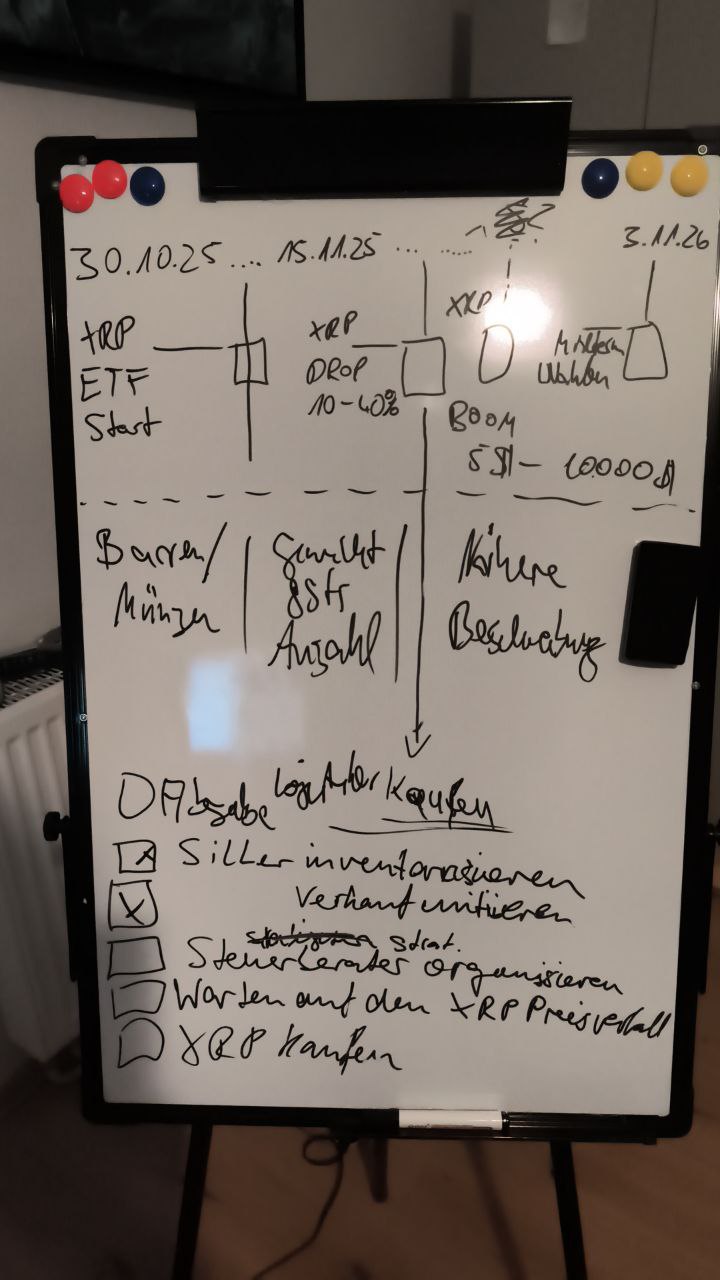 30.10.25 .... 15.11.25 ... ...... 3.11.26
XRP
ETF
Start
XRP
DROP
10-40%
XRP
BOOM
5$ - 10000$
Midterm
Wahlen
Barren/
Münzen
Gewicht
Anzahl
Nähere
Beschreibung
kaufen
Silber inventarisieren
Verkauf initiieren
Strat.
Steuerberater organisieren
Warten auf den XRP Preisverfall
XRP kaufen